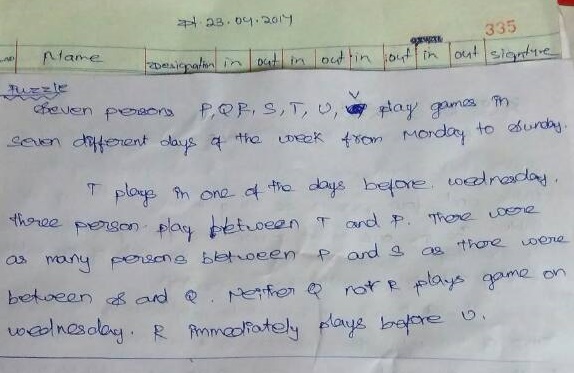 23.04.2017
335
Name Designation in out in out in out in out signture
Puzzle
Seven persons P,QR, S, T, U, V play games in
seven different days of the week from Monday to Sunday.
T plays in one of the days before wednesday.
three person play between T and P. There were
as many persons between P and S as there were
between S and Q. Neither Q not R plays game on
wednesday. R immediately plays before U.